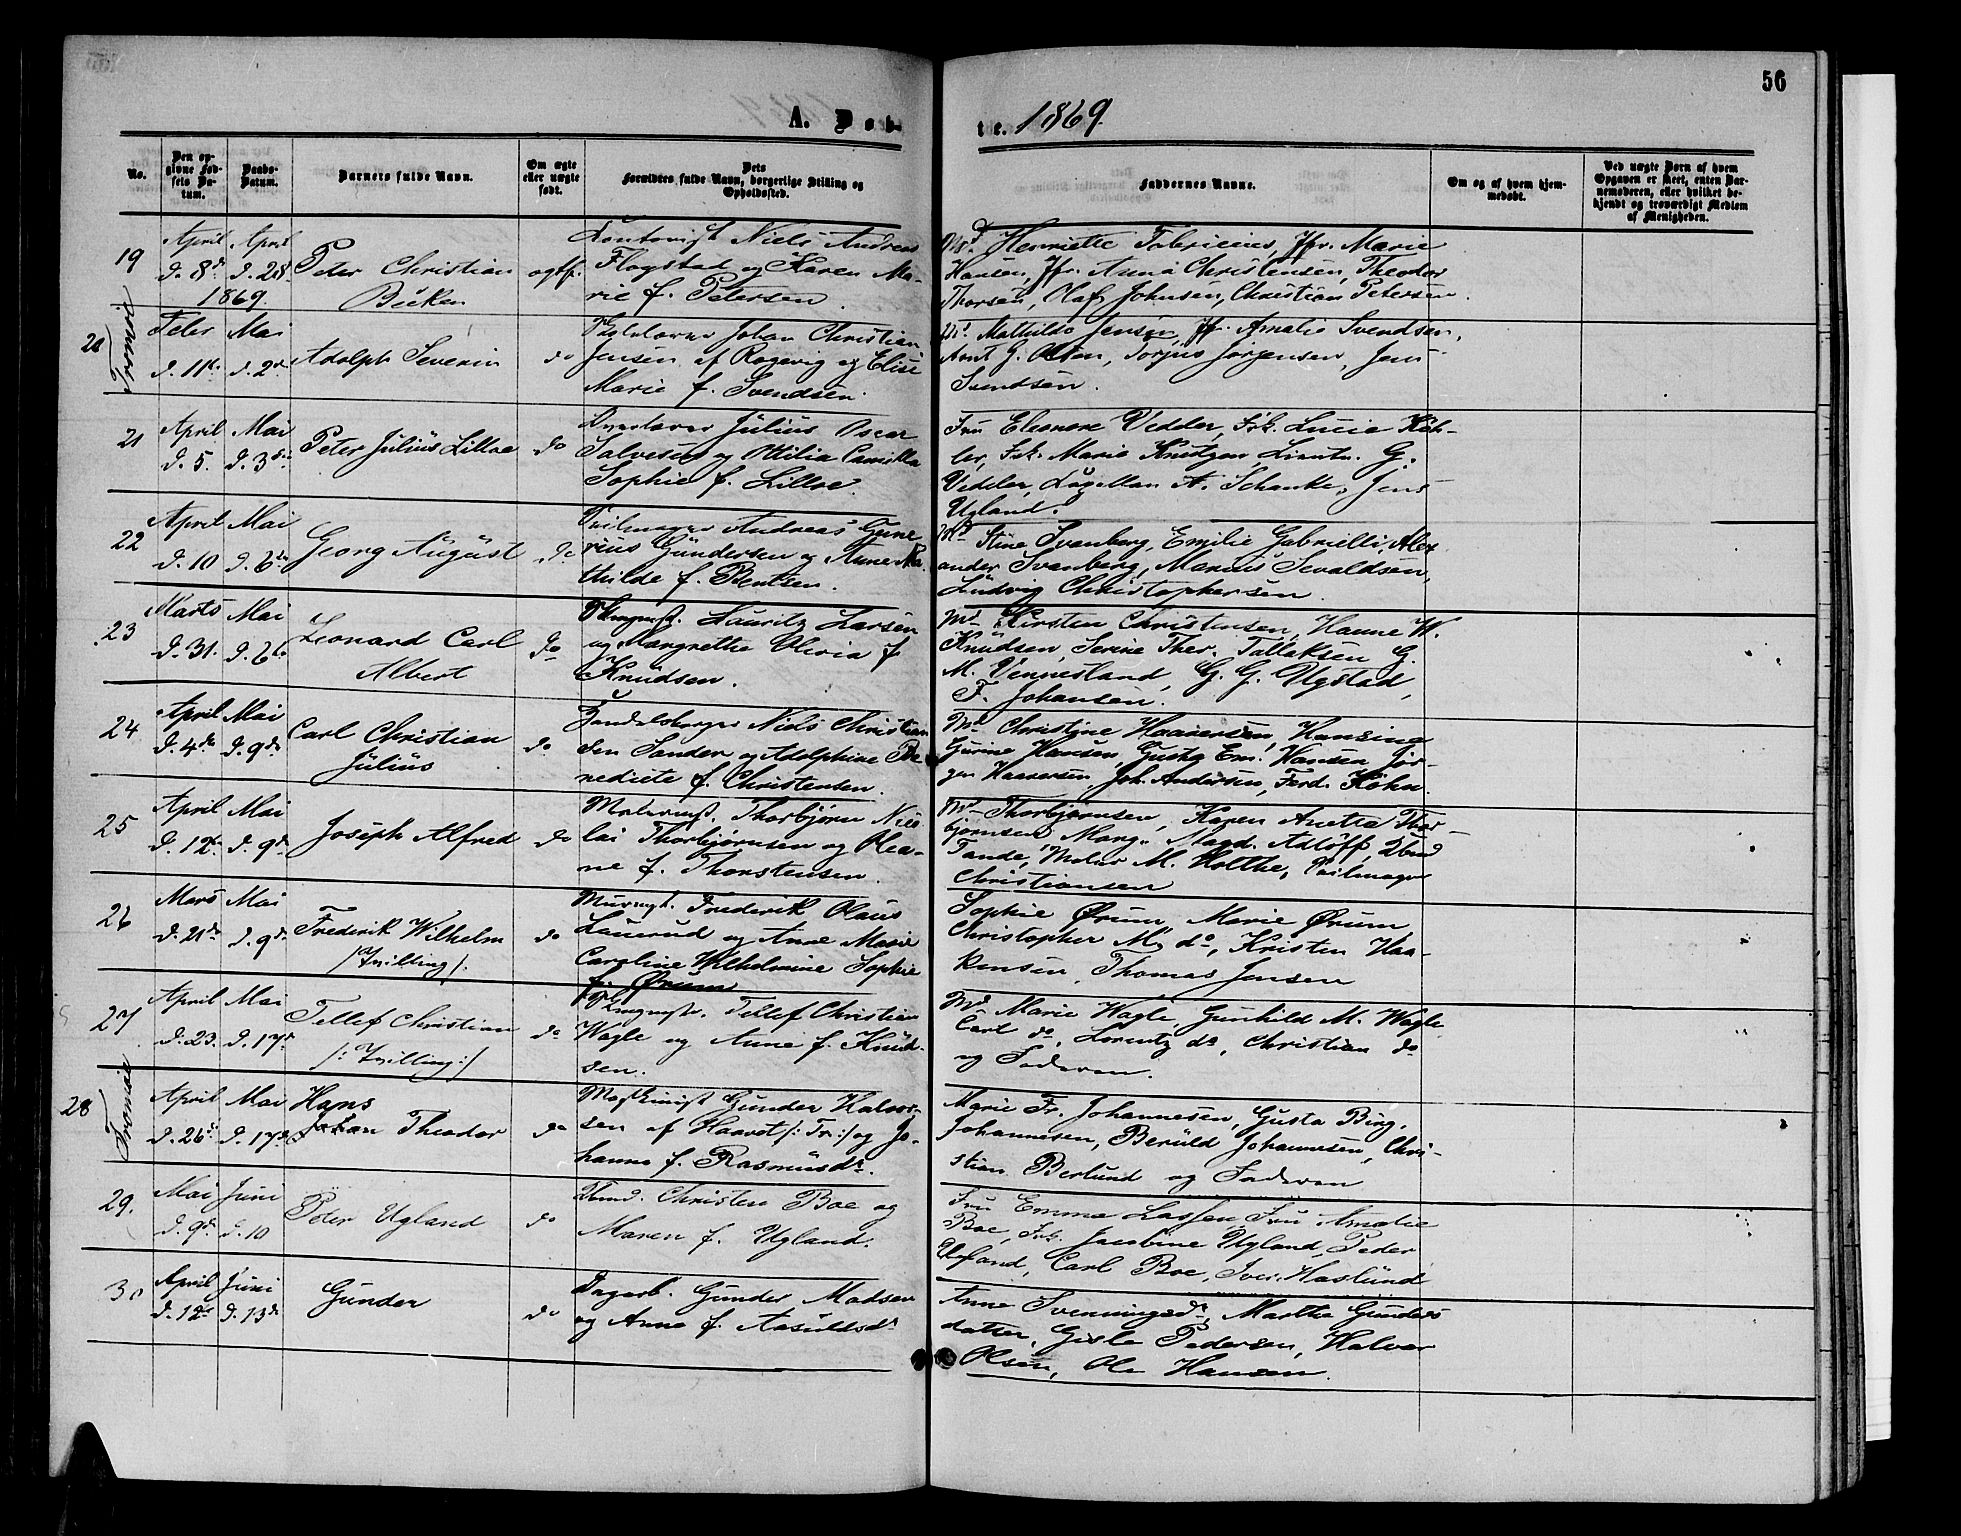 56
A. Døb-
te. 1869
No.
Den op-
givne Fød-
sels Da-
tum.
Daabs-
Datum.
Barnets fulde Navn.
Om ægte
eller uægte
født.
Dets
Forældres fulde Navn, borgerlige Stilling og
Opholdssted.
Faddernes Navne.
Om og af hvem hjem-
medøbt.
Ved uægte Børn af hvem
Opgaven er skeet, enten Bar-
nemoderen, eller hvilket be-
kjendt og troværdigt Medlem
af Menigheden.
19
April
d. 8de
1869
April
d. 28
Peter Christian
Bücken
ægtf.
Contorist Niels Andreas
Flogstad og Karen Ma-
rie f. Petersen.
Henriette Fabricius, Jfr. Marie
Hansen, Jfr. Anna Christensen, Theodor
Thorsen, Olaf Johnsen, Christian Petersen.
20
Tromøe
Feber
d. 11te
Mai
d. 2den
Adolph Severin
do
Johan Christian
Jensen af Rægevig og Elise
Marie f. Svendsen.
Md. Mathilde Jensen, Jfr. Amalie Svendsen,
Arnt G. Olsen, Torjus Jørgensen, Jens
Svendsen.
21
April
d. 5.
Mai
d. 3die
Peter Julius Lilloe
do
Julius Oscar
Salvesen og Ottilia Camilla
Sophie f. Lilloe.
Fru Eleonore Vedeler, Frk. Lucie Køh-
ler, Frk. Marie Knutzen, Lieutn. G.
Vedeler, A. Schanke, Jens
Ugland.
22
April
d. 10
Mai
d. 6te
Georg August
do
Seilmager Andreas Gune
rius Gundersen og Anne Ma-
thilde f. Bentsen.
Md. Stine Svanberg, Emilie Gabrielli, Alex
ander Svanberg, Marius Sevaldsen,
Ludvig Christophersen.
23
Marts
d. 31.
Mai
d. 6te
Leonard Carl
Albert
do
Lauritz Larsen
og Margrethe Olivia f.
Knudsen.
Md. Kirsten Christensen, Hanne W.
Knudsen, Serine Ther. Tallaksen G.
M. Vennesland, G. G. Ugstad,
F. Johansen.
24
April
d. 4de
Mai
d. 9de
Carl Christian
Julius
do
Handelsborger Niels Christian
sen Sander og Adolphine Be
nedicte f. Christensen.
Md. Christine Haaversen, Hansine
Gurine Hansen, Gusta Em. Hansen, Jør-
gen Haaversen, Joh. Andersen, Ferd. Køhn.
25
April
d. 12te
Mai
d. 9de
Joseph Alfred
do
Malermst. Thorbjørn Nico
lai Thorbjørnsen og Olea-
ne f. Thorstensen.
Md. Thorbjørnsen, Karen Anette Thor-
bjørnsen, Marg. Magd. Adloff,
Tande, Maler M. Holthe, Seilmager
Christiansen
26
Mars
d. 21de
Mai
d. 9de
Frederik Wilhelm
/:Tvilling:/
do
Murmst. Frederik Olaus
Laurud og Anne Marie
Caroline Wilhelmine Sophie
f. Ørum
Sophie Ørum, Marie Ørum,
Christopher M. do, Kristen Haa-
kensen, Thomas Jensen
27
April
d. 23.
Mai
d. 17de
Tellef Christian
/:Tvilling:/
do
Tellef Christian
Wagle og Anne f. Knud-
sen.
Md. Marie Wagle, Gunhild M. Wagle,
Carl do, Lorentz do, Christian do
og Faderen.
28
Tromøe
April
d. 26de
Mai
d. 17de
Hans
Johan Theodor
do
Maskinist Gunder Halvor-
sen af Haavet /:Tr:/ og Jo-
hanne f. Rasmusdr.
Marie Fr. Johannesen, Gusta Birg.
Johannesen, Beruld Johannesen, Chri-
stian Berlund og Faderen
29.
Mai
d. 9de
Juni
d. 10
Peter Ugland
do
Christen Boe og
Maren f. Ugland.
Fru Emma Lassen, Fru Amalie
Boe, Frk. Jacobine Ugland, Peder
Ugland, Carl Boe, Iver Haslund
30
April
d. 12te
Juni
d. 13de
Gunder
do
Dagarb. Gunder Madsen
og Anne f. Aasuldsdr
Anne Svenningsdr, Marthe Gunders
datter, Gisle Pedersen, Halvor
Olsen, Ole Hansen.